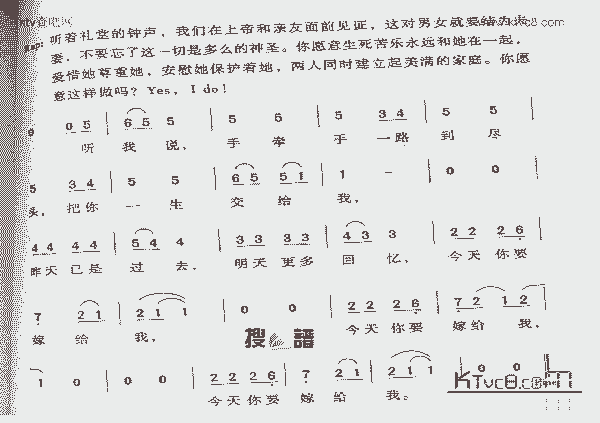 rap：听着礼堂的钟声，我们在上帝和亲友面前见证，这对男女就要结为夫
妻，不要忘了这一切是多么的神圣。你愿意生死苦乐永远和她在一起，
爱惜她尊重她，安慰她保护着她，两人同时建立起美满的家庭。你愿
意这样做吗？Yes，I do！
0 0 5 | 6 5 5 | 5 5 | 5 3 4 | 5 5
听 我 说， 手 牵 手 一 路 到 尽
5 3 4 | 5 5 | 6 5 5 1 | 1 - | 0 0
头，把你 一 生 交 给 我，
4 4 4 4 | 5 4 4 | 3 3 3 3 | 4 3 3 | 2 2 2 6
昨天 已是 过 去， 明天 更多 回 忆， 今天 你要
7 2 1 | 2 1 1 | 0 0 | 2 2 2 6 | 7 2 1 2
嫁 给 我， 今天 你要 嫁给 我，
搜 譜
1 0 | 0 0 | 2 2 2 6 | 7 2 1 | 2 1 1 | 0 0
今天 你要 嫁 给 我。
KTvc8.com